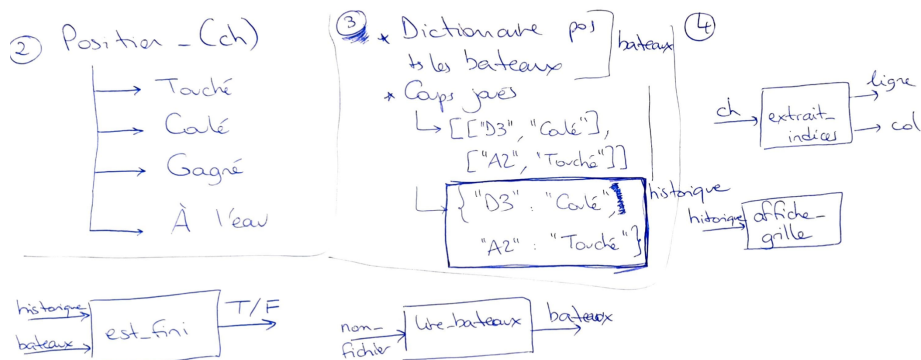 ② Position_(ch)
Touché
Coulé
Gagné
À l'eau
③ * Dictionnaire pos
ts les bateaux
bateaux
* Coups joués
[["D3", "Coulé"],
["A2", "Touché"]]
{"D3" : "Coulé",
"A2" : "Touché"}
historique
④
ch
extrait_
indices
ligne
col
historique
affiche_
grille
historique
bateaux
est_fini
T/F
nom_
fichier
lire_bateaux
bateaux